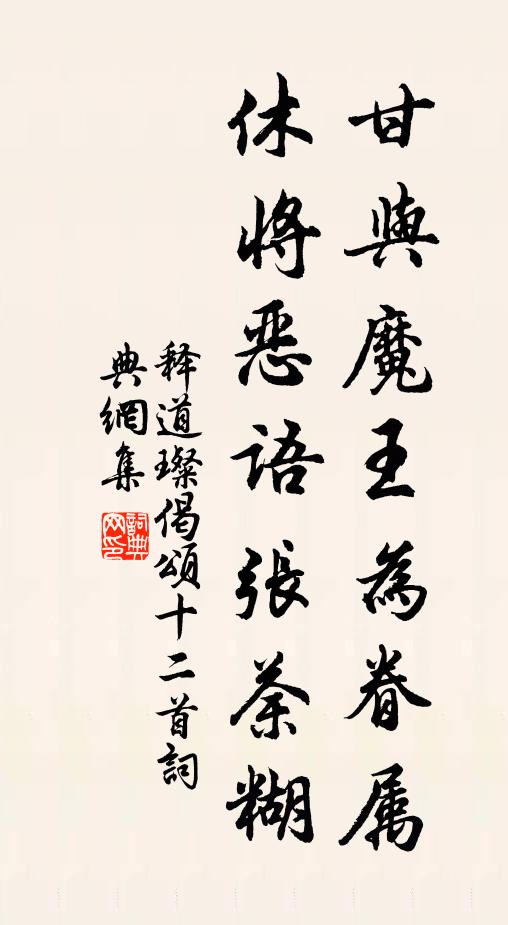 甘與魔王為眷属
休將恶語張茶糊
释道璨偈頌十二首詞
典網集
詞典
网印